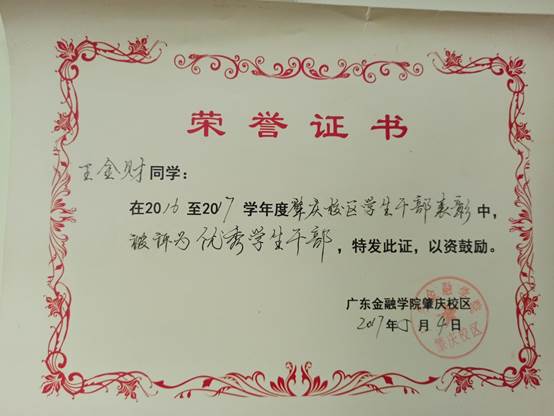 荣誉证书
王金财同学：
在2016至2017学年度肇庆校区学生干部表彰中，
被评为优秀学生干部，特发此证，以资鼓励。
广东金融学院肇庆校区
2017年5月4日
肇庆校区